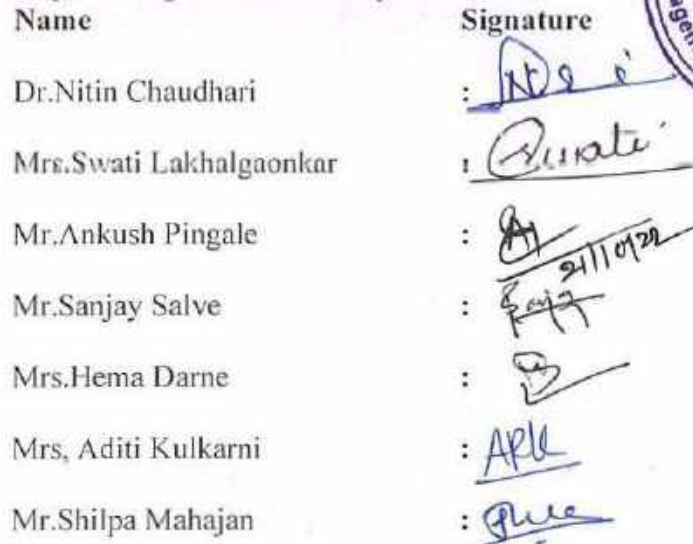 Name Signature
Dr.Nitin Chaudhari :
Mrs.Swati Lakhalgaonkar : Swati
Mr.Ankush Pingale : 21/10/22
Mr.Sanjay Salve :
Mrs.Hema Darne :
Mrs, Aditi Kulkarni : APK
Mr.Shilpa Mahajan :